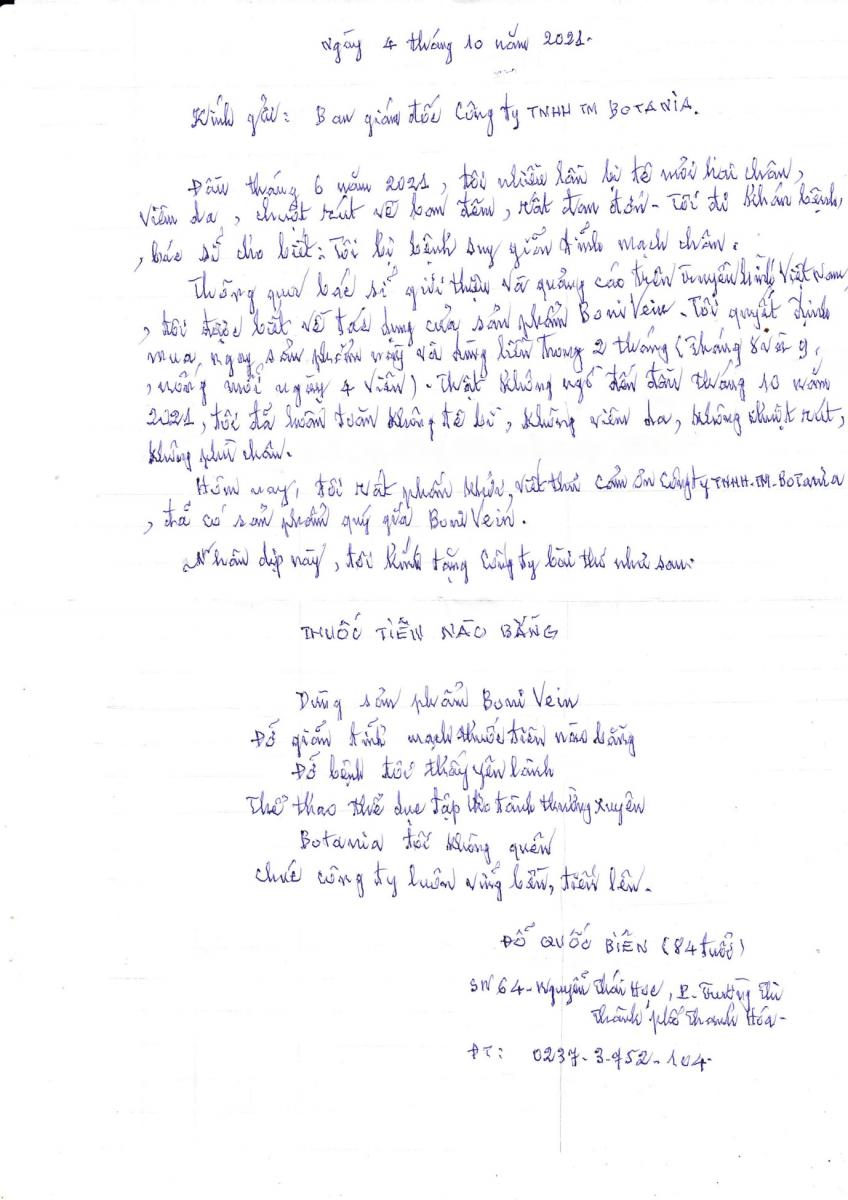 Ngày 4 tháng 10 năm 2021.
Kính gửi: Ban giám đốc Công ty TNHH TM BOTANIA.
Đầu tháng 6 năm 2021, tôi nhiều lần bị tê mỏi hai chân,
viêm da, chuột rút về ban đêm, rất đau đớn - Tôi đi khám bệnh,
, bác sĩ cho biết: Tôi bị bệnh suy giãn tĩnh mạch chân.
Thông qua bác sĩ giới thiệu và quảng cáo trên truyền hình Việt Nam,
, tôi được biết về tác dụng của sản phẩm BoniVein - Tôi quyết định
mua ngay sản phẩm này và dùng liền trong 2 tháng (Tháng 8 và 9,
, uống mỗi ngày 4 viên) - Thật không ngờ đến đầu tháng 10 năm
2021, tôi đã hoàn toàn không tê bì, không viêm da, không chuột rút,
không phù chân.
Hôm nay, tôi rất phấn khởi, viết thư cảm ơn Công ty TNHH-TM-Botania
, đã có sản phẩm quý giá BoniVein.
Nhân dịp này, tôi kính tặng Công ty bài thơ như sau:
THUỐC TIÊN NÀO BẰNG
Dùng sản phẩm BoniVein
Đỡ giãn tĩnh mạch thuốc tiên nào bằng
Đỡ bệnh tôi thấy yên lành
Thể thao thể dục tập thường xuyên
Botania tôi không quên
chúc công ty luôn vững bền, tiến lên.
ĐỖ QUỐC BIÊN (84 tuổi)
SN 64 - Nguyễn Thái Học, P. Trường Thi
Thành phố Thanh Hóa -
ĐT: 0237-3-952-104-